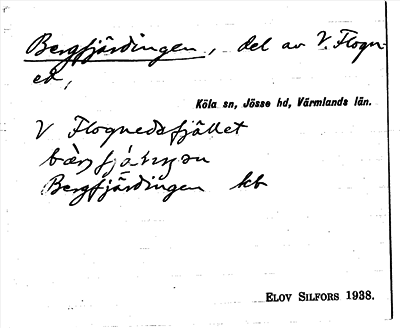 Bergfjärdingen, del av V. Flogn-
ed,
Köla sn, Jösse hd, Värmlands län.
V Flognedsfjället
Bergfjärdingen kb
ELOV SILFORS 1938.